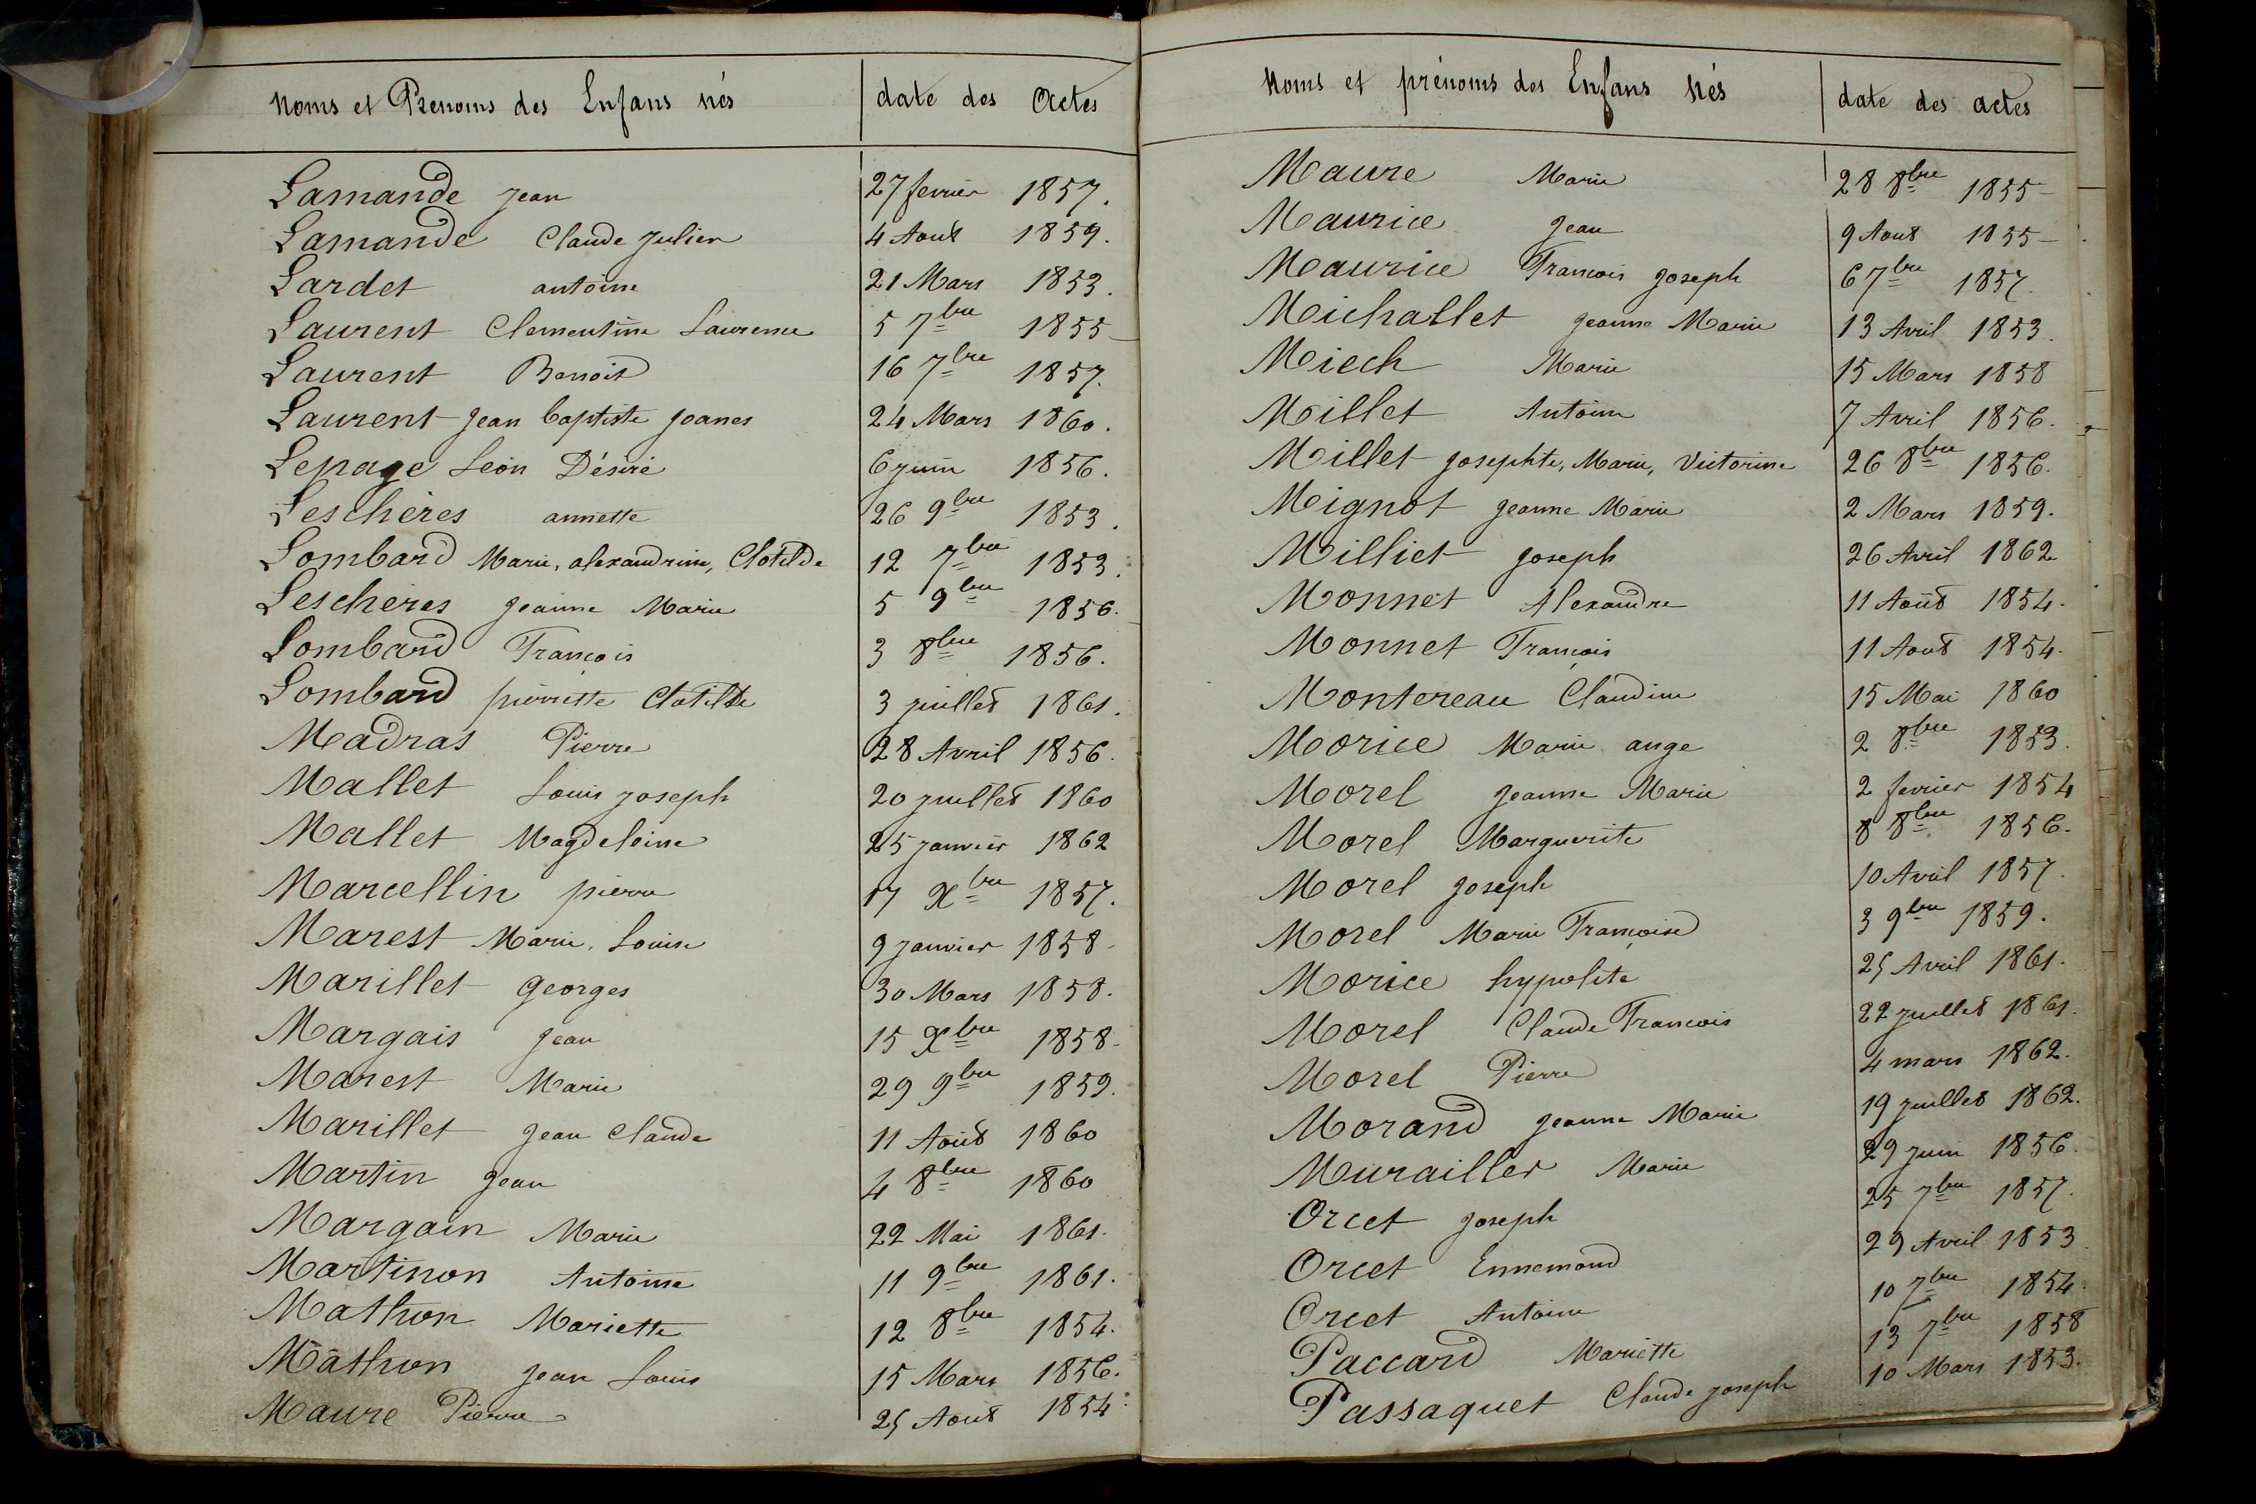 Noms et Prenoms des Enfans nés date des Actes
Lamande Jean 27 fevrier 1857.
Lamande Claude Julien 4 Aout 1859.
Lardet antoine 21 Mars 1853.
Laurent Clementine Laurence 5 7bre 1855
Laurent Benoit 16 7bre 1857.
Laurent Jean baptiste Joanes 24 Mars 1860.
Lepage Léon Désiré 6 juin 1856.
Leschères annette 26 9bre 1853.
Lombard Marie, alexandrine, Clotilde 12 7bre 1853.
Leschères Jeanne Marie 5 9bre 1856.
Lombard François 3 8bre 1856.
Lombard pierrette Clotilde 3 juillet 1861.
Madras Pierre 28 Avril 1856.
Mallet Louis Joseph 20 juillet 1860
Mallet Magdeleine 25 janvier 1862
Marcellin pierre 17 Xbre 1857.
Marest Marie, Louise 9 janvier 1858
Marillet Georges 30 Mars 1858.
Margais Jean 15 Xbre 1858
Marest Marie 29 9bre 1859.
Marillet Jean Claude 11 Août 1860
Martin Jean 4 8bre 1860
Margain Marie 22 Mai 1861.
Martinon Antoine 11 9bre 1861.
Mathon Mariette 12 8bre 1854.
Mathon Jean Louis 15 Mars 1856.
Maure Pierre 25 Aout 1854.
Noms et prénoms des Enfans Nés date des actes
Maure Marie 28 8bre 1855
Maurice Jean 9 Aout 1855
Maurice Francois Joseph 6 7bre 1857.
Michallet Jeanne Marie 13 Avril 1853.
Miech Marie 15 Mars 1858
Millet Antoine 7 Avril 1856.
Millet Josephte, Marie, Victorine 26 8bre 1856.
Mignot Jeanne Marie 2 Mars 1859.
Milliet Joseph 26 Avril 1862
Monnet Alexandre 11 Août 1854.
Monnet François 11 Aout 1854.
Montereau Claudine 15 Mai 1860
Morice Marie ange 2 8bre 1853.
Morel Jeanne Marie 2 fevrier 1854
Morel Marguerite 8 8bre 1856.
Morel Joseph 10 Avril 1857.
Morel Marie Françoise 3 9bre 1859.
Morice hypolite 25 Avril 1861.
Morel Claude Francois 22 juillet 1861.
Morel Pierre 4 mars 1862.
Morand Jeanne Marie 19 juillet 1862.
Murailler Marie 29 juin 1856.
Orcet Joseph 25 7bre 1857.
Orcet Ennemond 29 Avril 1853
Orcet Antoine 10 7bre 1854.
Paccard Mariette 13 7bre 1858
Passaquet Claude Joseph 10 Mars 1853.